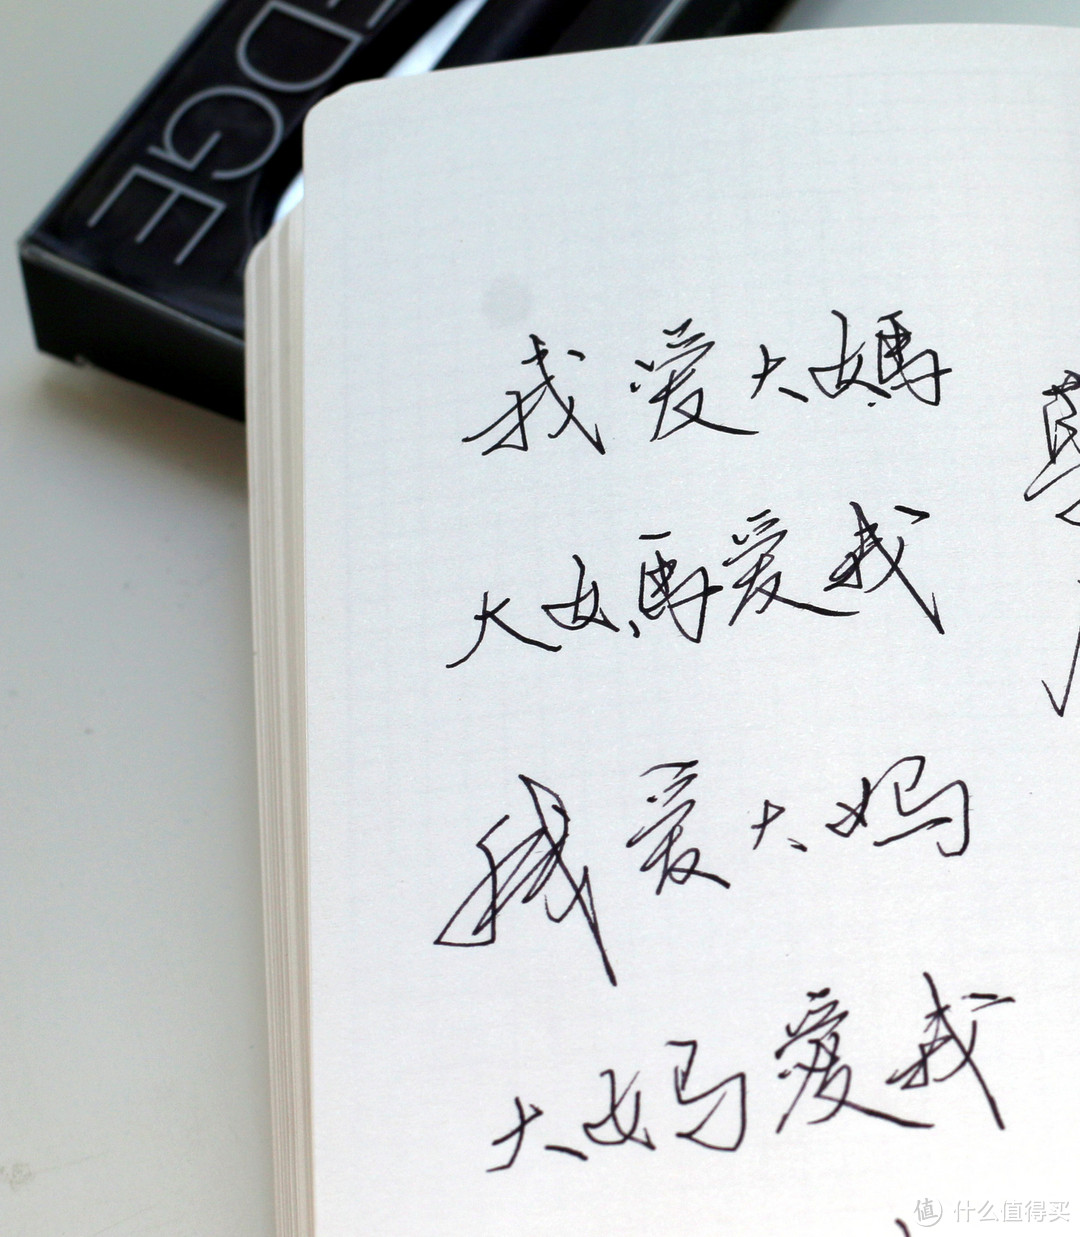 EDGE
我爱大媽
大媽爱我
我爱大妈
大妈爱我
值 什么值得买